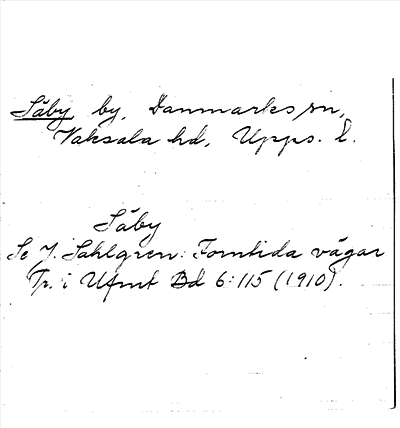 Säby, by, Danmarks sn,
Vaksala hd, Upps. l.
Säby
Se J. Sahlgren: Forntida vägar
Tr. i Ufmt Bd 6:115 (1910).